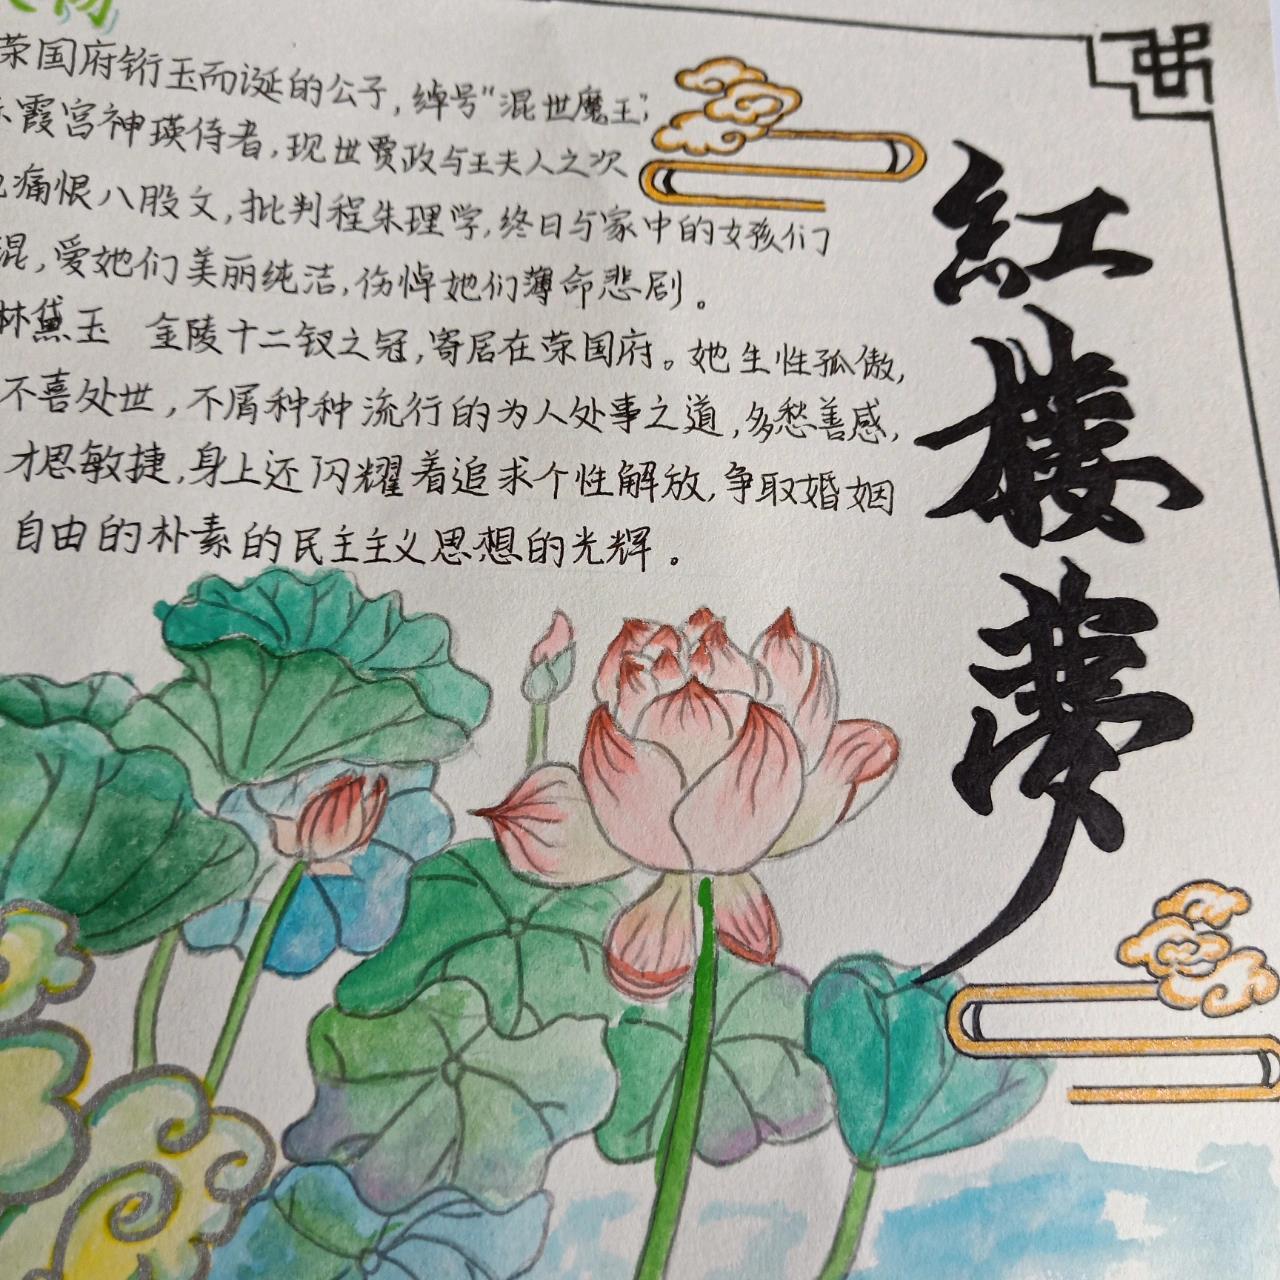 荣国府衔玉而诞的公子，绰号“混世魔王”；
霞宫神瑛侍者，现世贾政与王夫人之次
痛恨八股文，批判程朱理学，终日与家中的女孩们
混，爱她们美丽纯洁，伤悼她们薄命悲剧。
林黛玉 金陵十二钗之冠，寄居在荣国府。她生性孤傲，
不喜处世，不屑种种流行的为人处事之道，多愁善感，
才思敏捷，身上还闪耀着追求个性解放，争取婚姻
自由的朴素的民主主义思想的光辉。
紅楼夢